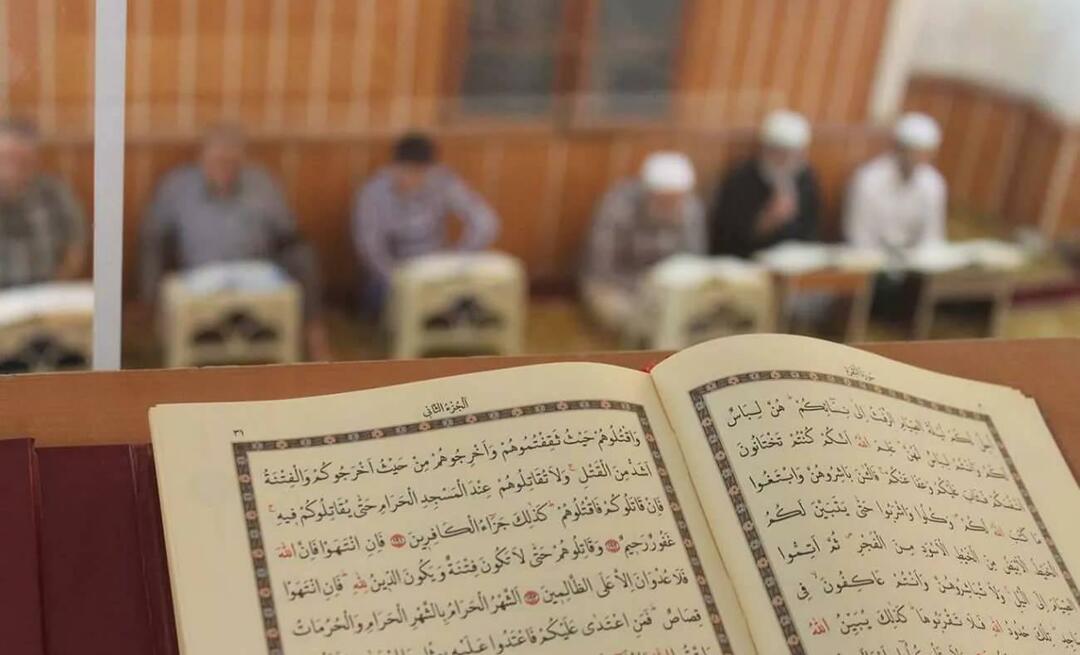 سورة البقرة
أُحِلَّ لَكُمْ لَيْلَةَ الصِّيَامِ الرَّفَثُ إِلَى نِسَائِكُمْ هُنَّ لِبَاسٌ
لَكُمْ وَأَنْتُمْ لِبَاسٌ لَهُنَّ عَلِمَ اللهُ أَنَّكُمْ كُنْتُمْ تَخْتَانُونَ
أَنْفُسَكُمْ فَتَابَ عَلَيْكُمْ وَعَفَا عَنْكُمْ فَالْآنَ بَاشِرُوهُنَّ وَابْتَغُوا
مَا كَتَبَ اللهُ لَكُمْ وَكُلُوا وَاشْرَبُوا حَتَّى يَتَبَيَّنَ لَكُمُ
الْخَيْطُ الْأَبْيَضُ مِنَ الْخَيْطِ الْأَسْوَدِ مِنَ الْفَجْرِ ثُمَّ أَتِمُّوا
الصِّيَامَ إِلَى اللَّيْلِ وَلَا تُبَاشِرُوهُنَّ وَأَنْتُمْ عَاكِفُونَ فِي
الْمَسَاجِدِ تِلْكَ حُدُودُ اللهِ فَلَا تَقْرَبُوهَا كَذَلِكَ يُبَيِّنُ اللهُ
الجزء الثاني
وَاقْتُلُوهُمْ حَيْثُ ثَقِفْتُمُوهُمْ وَأَخْرِجُوهُمْ مِنْ حَيْثُ أَخْرَجُوكُمْ وَالْفِتْنَةُ
أَشَدُّ مِنَ الْقَتْلِ وَلَا تُقَاتِلُوهُمْ عِنْدَ الْمَسْجِدِ الْحَرَامِ حَتَّى يُقَاتِلُوكُمْ فِيهِ
فَإِنْ قَاتَلُوكُمْ فَاقْتُلُوهُمْ كَذَلِكَ جَزَاءُ الْكَافِرِينَ فَإِنِ انْتَهَوْا فَإِنَّ اللهَ
غَفُورٌ رَحِيمٌ وَقَاتِلُوهُمْ حَتَّى لَا تَكُونَ فِتْنَةٌ وَيَكُونَ الدِّينُ لِلهِ فَإِنِ انْتَهَوْا
فَلَا عُدْوَانَ إِلَّا عَلَى الظَّالِمِينَ الشَّهْرُ الْحَرَامُ بِالشَّهْرِ الْحَرَامِ وَالْحُرُمَاتُ
قِصَاصٌ فَمَنِ اعْتَدَى عَلَيْكُمْ فَاعْتَدُوا عَلَيْهِ بِمِثْلِ